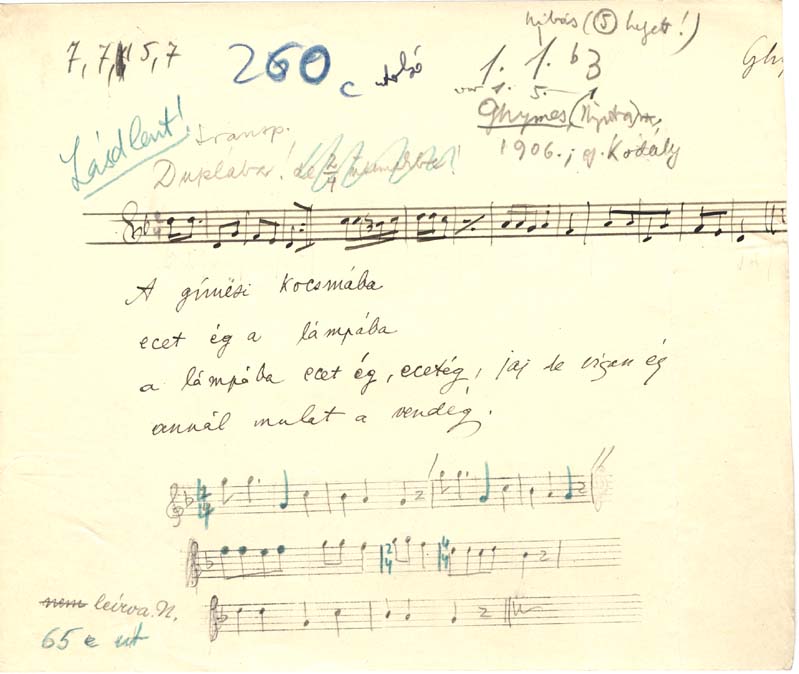 hibás (5 helyett!)
7, 7, 5, 7
260
c utolsó
1. 1. b3
5.
Gh
Lásd lent!
transp.
Ghymes, (Nyitra)
Duplába! de 2/4
1906.; gy. Kodály
A gímësi kocsmába
ecet ég a lámpába
a lámpába ecet ég, ecetég, jaj de vigan ég
annál mulat a vendég.
2/4
2/4 4/4
nem leírva. N.
65 e ut